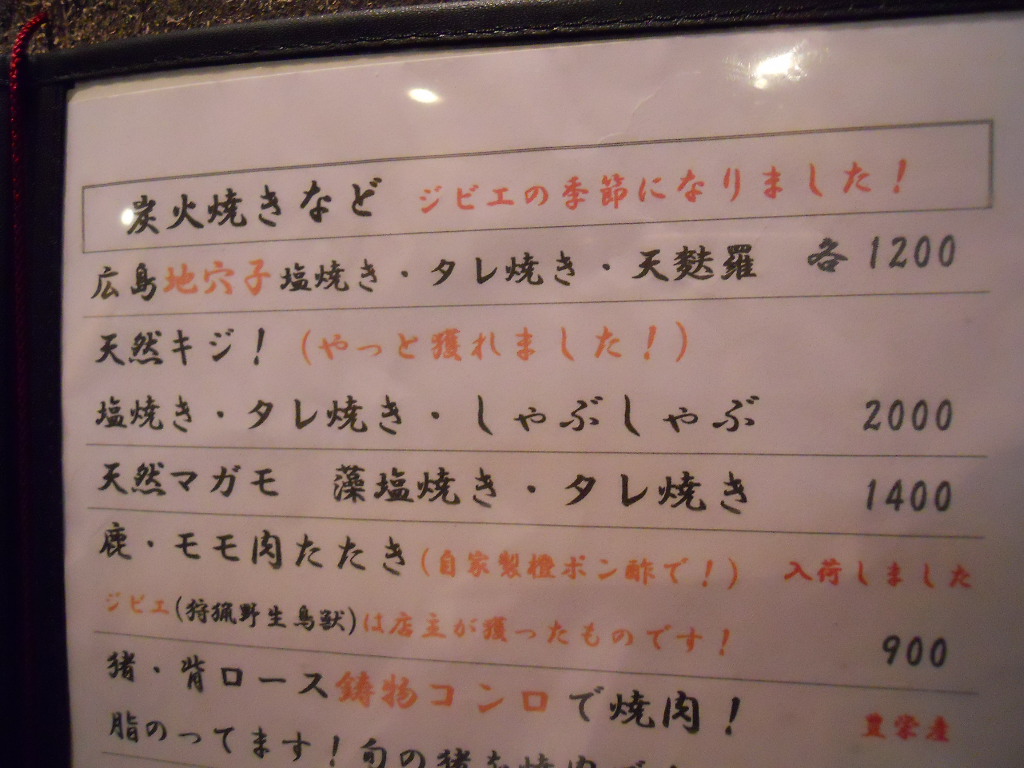 炭火焼きなど ジビエの季節になりました！
広島地穴子塩焼き・タレ焼き・天麩羅 各1200
天然キジ！（やっと獲れました！）
塩焼き・タレ焼き・しゃぶしゃぶ 2000
天然マガモ 藻塩焼き・タレ焼き 1400
鹿・モモ肉たたき（自家製橙ポン酢で！） 入荷しました
ジビエ(狩猟野生鳥獣)は店主が獲ったものです！ 900
猪・背ロース鋳物コンロで焼肉！
脂のってます！旬の猪を焼肉で 豊栄産